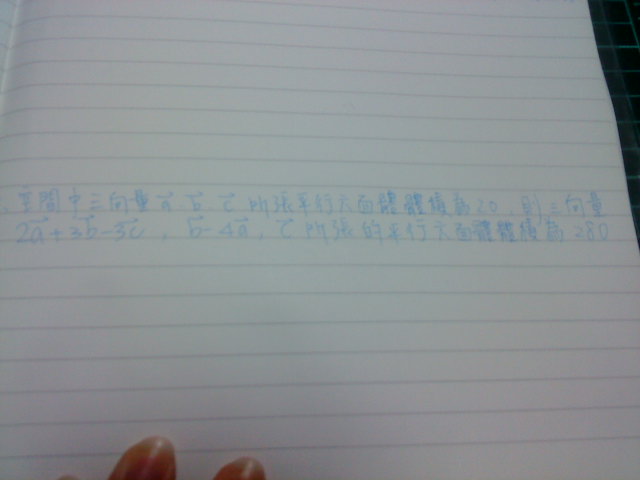 空間中三向量a⃗、b⃗、c⃗所張平行六面體體積為20，則三向量
2a⃗+3b⃗-3c⃗，b⃗-4a⃗，c⃗所張的平行六面體體積為280